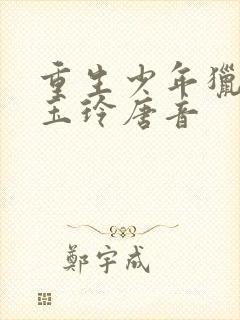 重生少年獵
玉玲唐音
鄭宇成